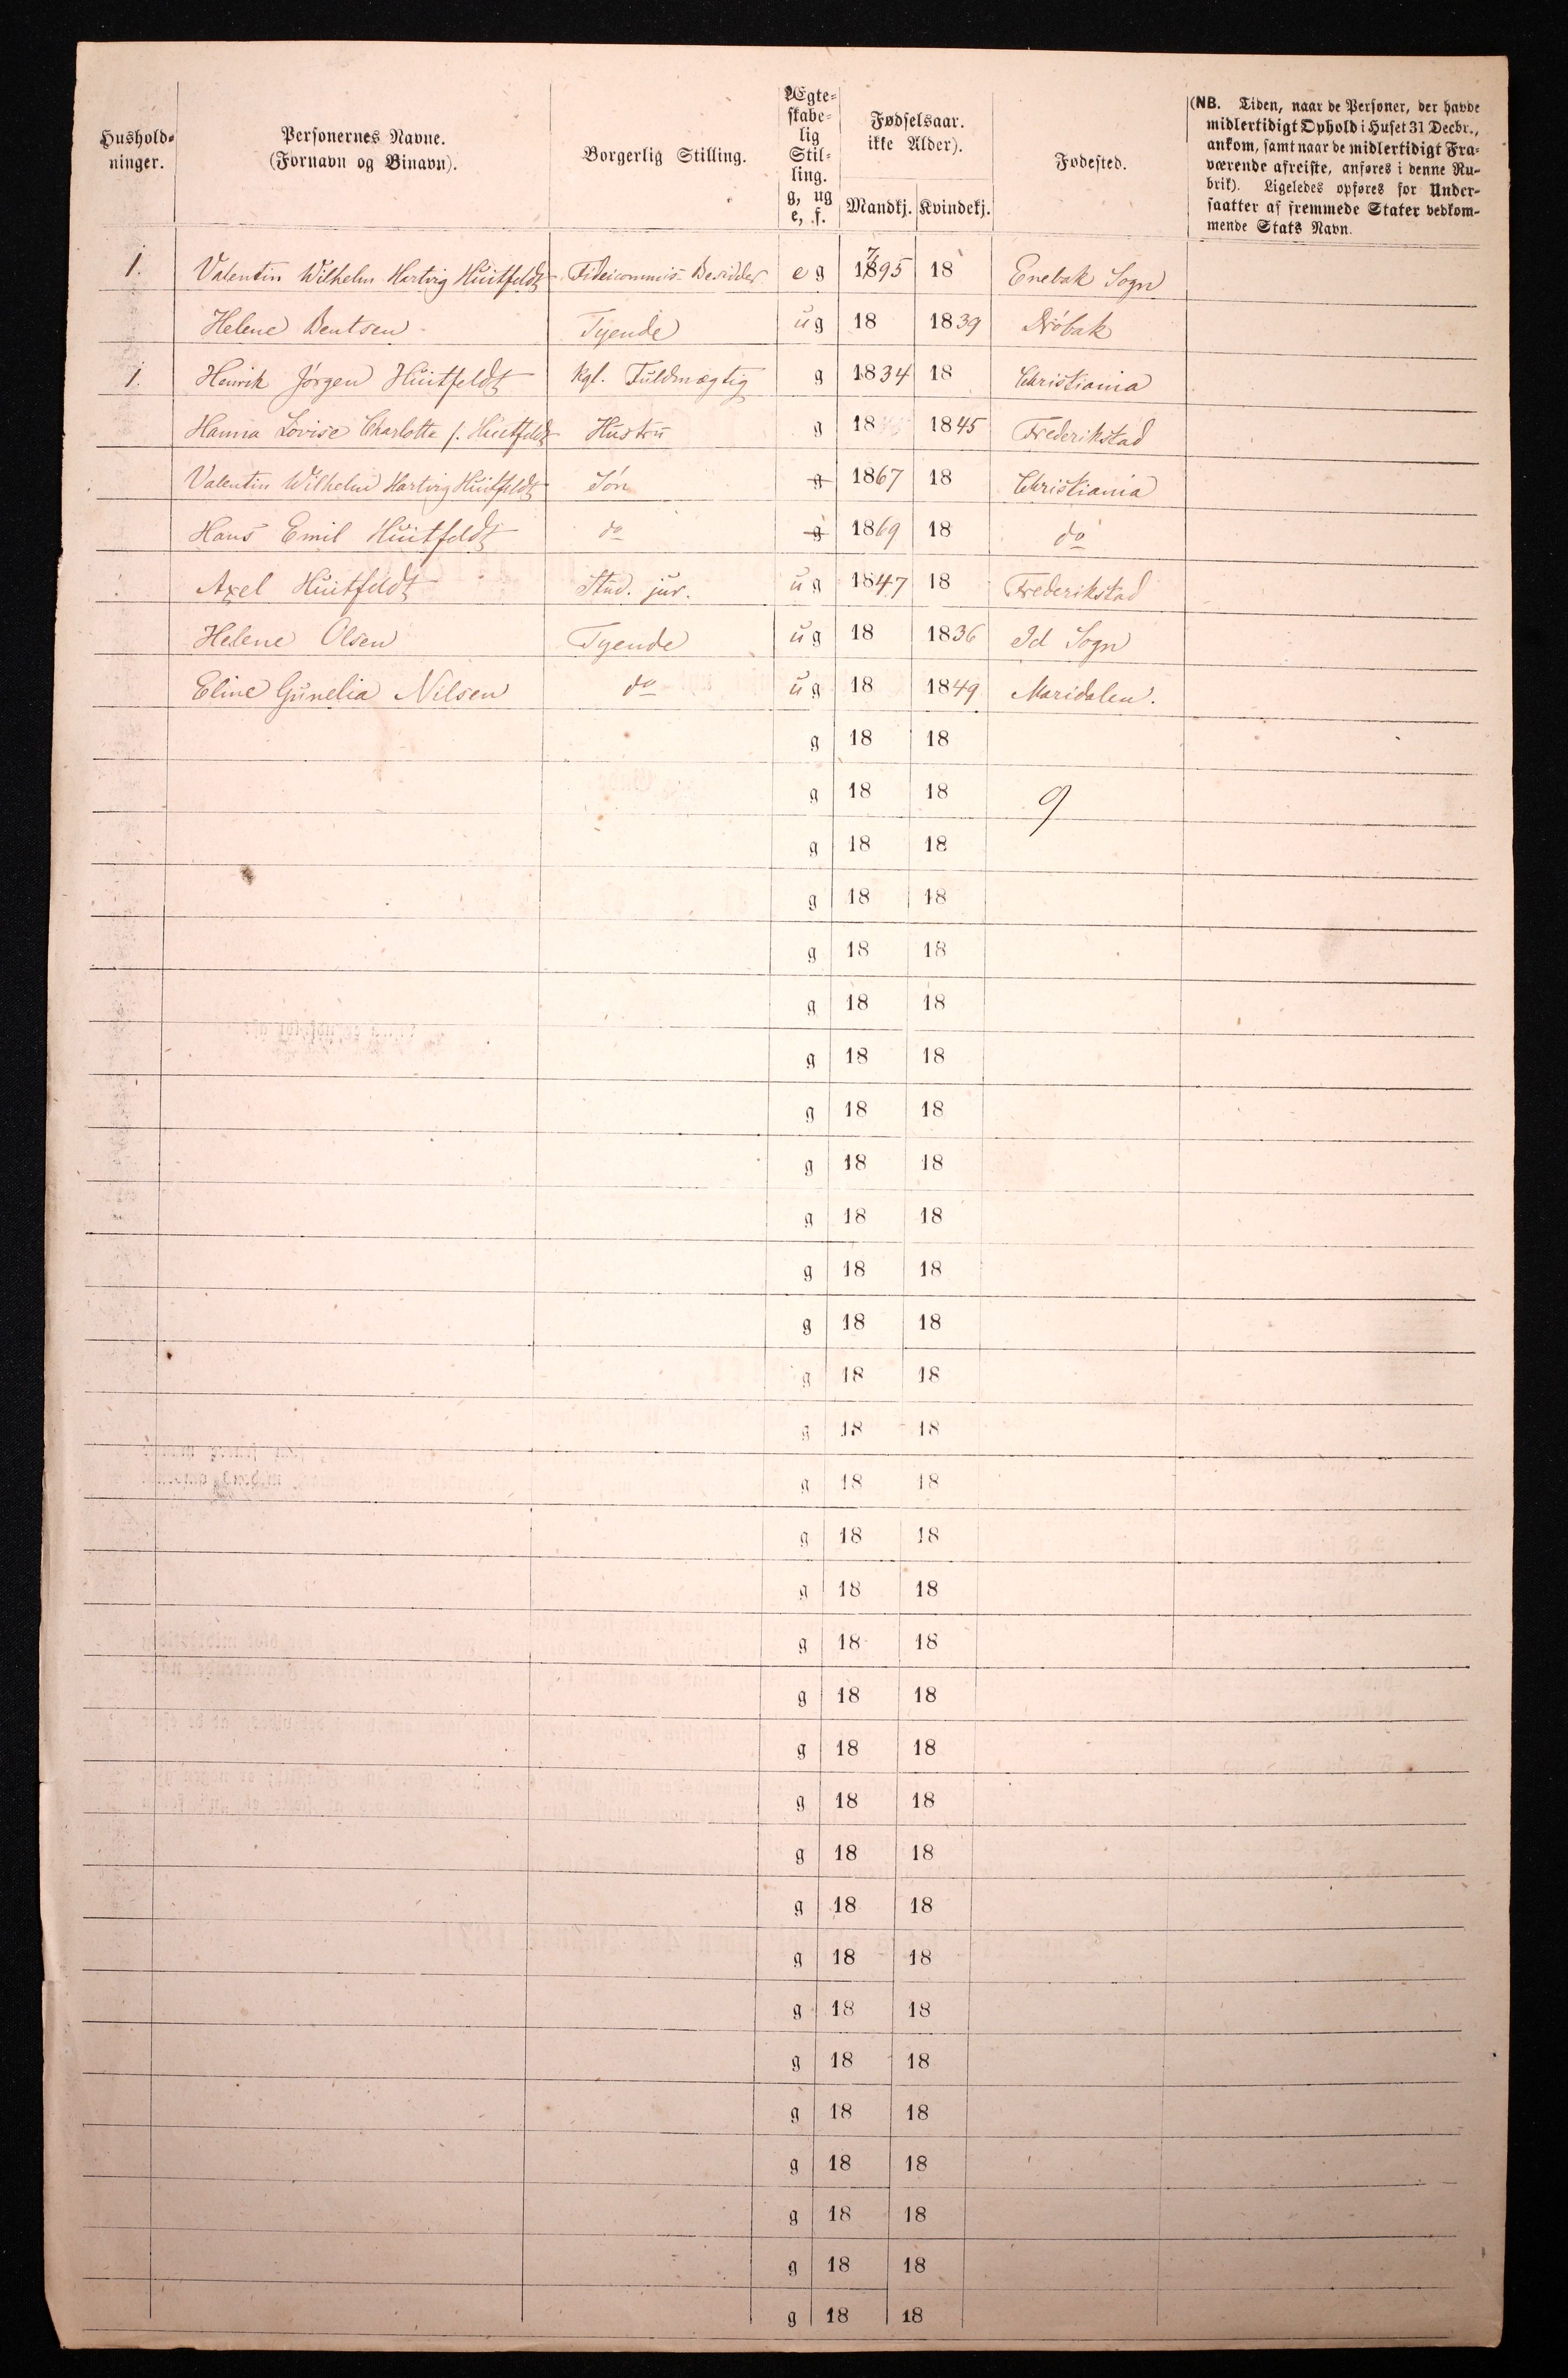 Hushold-ninger. | Personernes Navne. (Fornavn og Binavn). | Borgerlig Stilling. | Ægte-skabe-lig Stil-ling. g, ug e, f. | Fødselsaar. ikke Alder). Mandkj. Kvindekj. | Fødested. | (NB. Tiden, naar de Personer, der havde midlertidigt Ophold i Huset 31 Decbr., ankom, samt naar de midlertidigt Fra-værende afreiste, anføres i denne Ru-brik). Ligeledes opføres for Under-saatter af fremmede Stater vedkom-mende Stats Navn.
1. Valentin Wilhelm Hartvig Huitfeldt Fideicommis-Besidder e g 1895 7 18 Enebak Sogn
Helene Bentsen Tyende u g 18 1839 Drøbak
1. Henrik Jørgen Huitfeldt Kgl. Fuldmægtig g 1834 18 Christiania
Hanna Lovise Charlotte f. Huitfeldt Hustru g 18 1845 Frederikstad
Valentin Wilhelm Hartvig Huitfeldt Søn g 1867 18 Christiania
Hans Emil Huitfeldt do g 1869 18 do
Axel Huitfeldt Stud. jur. u g 1847 18 Frederikstad
Helene Olsen Tyende u g 18 1836 Id Sogn
Eline Gunelia Nilsen do u g 18 1849 Maridalen.
g 18 18
g 18 18 9
g 18 18
g 18 18
g 18 18
g 18 18
g 18 18
g 18 18
g 18 18
g 18 18
g 18 18
g 18 18
g 18 18
g 18 18
g 18 18
g 18 18
g 18 18
g 18 18
g 18 18
g 18 18
g 18 18
g 18 18
g 18 18
g 18 18
g 18 18
g 18 18
g 18 18
g 18 18
g 18 18
g 18 18
g 18 18